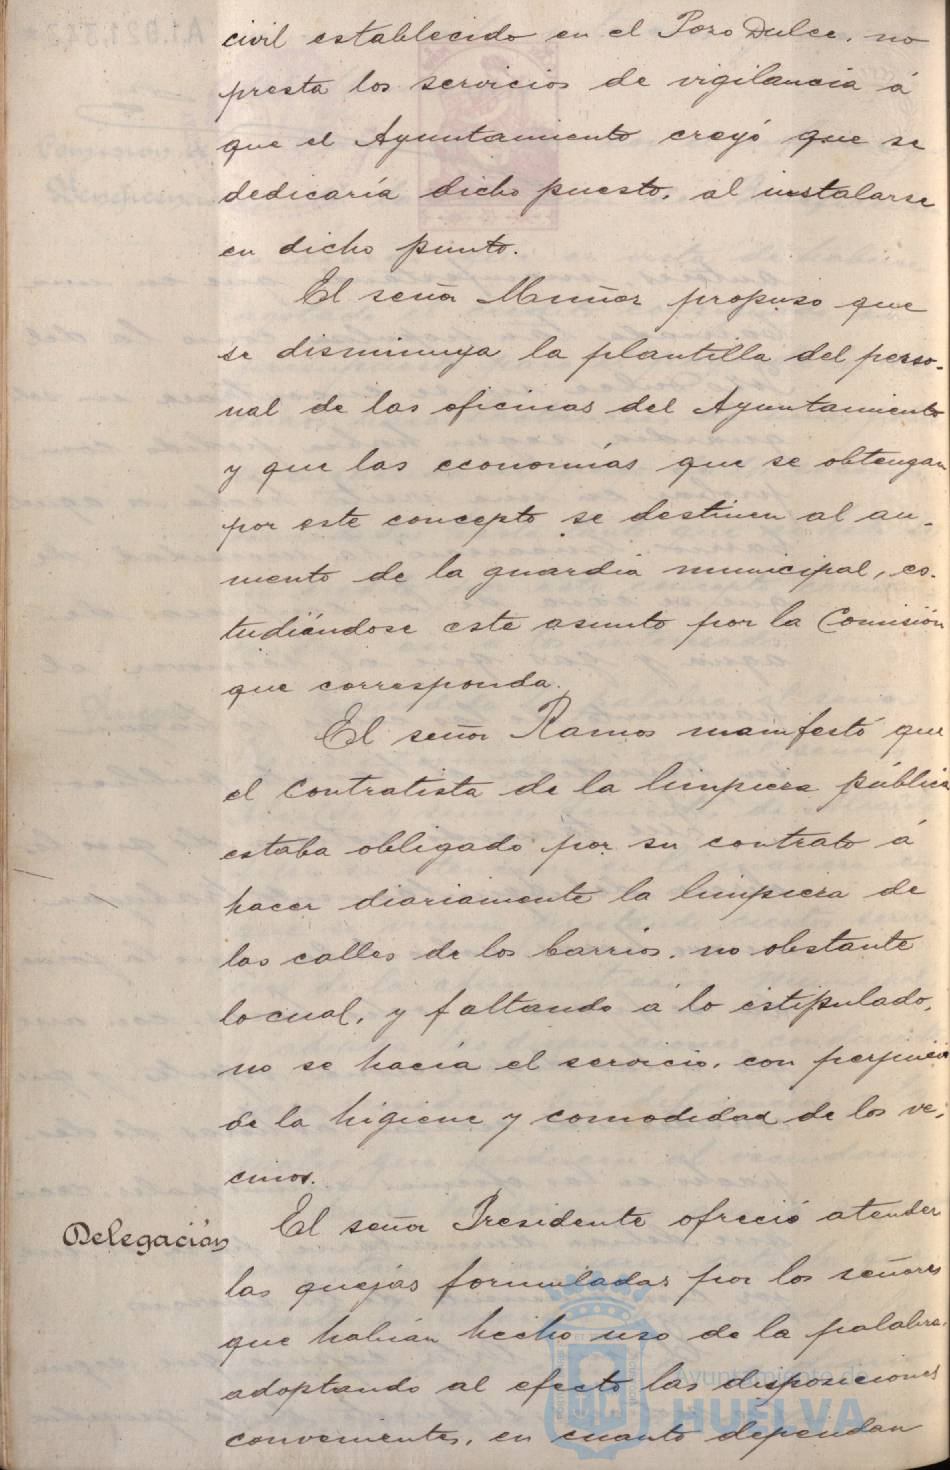 civil establecido en el Pozo Dulce, no
presta los servicios de vigilancia á
que el Ayuntamiento creyó que se
dedicaría dicho puesto, al instalarse
en dicho punto.
El señor Muñoz propuso que
se disminuya la plantilla del perso-
nal de las oficinas del Ayuntamiento
y que las economías que se obtengan
por este concepto se destinen al au-
mento de la guardia municipal, es-
tudiándose este asunto por la Comisión
que corresponda.
El señor Ramos manifestó que
el Contratista de la limpieza pública
estaba obligado por su contrato á
hacer diariamente la limpieza de
las calles de los barrios, no obstante
locual, y faltando á lo estipulado,
no se hacía el servicio, con perjuicio
de la higiene y comodidad de los ve-
cinos.
Delegación
El señor Presidente ofreció atender
las quejas formuladas por los señores
que habían hecho uso de la palabra,
adoptando al efecto las disposiciones
convenientes, en cuanto dependan
Ayuntamiento de
HUELVA